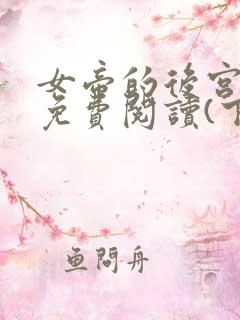 女帝的後宮
免費閱讀(
鱼問舟